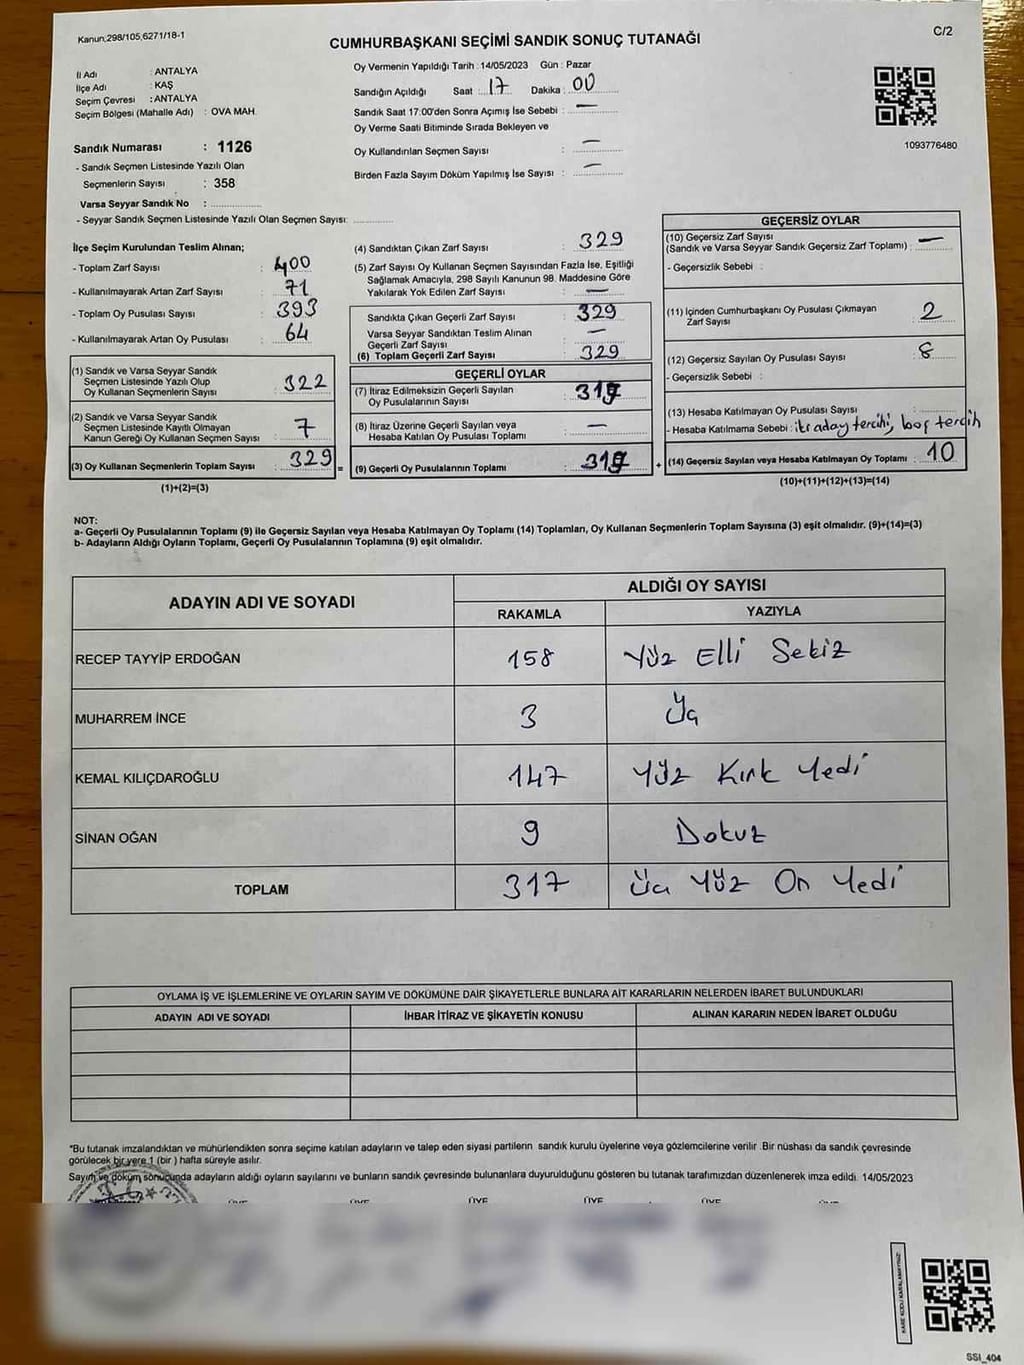 Kanun,298/105,6271/18-1
C/2
CUMHURBAŞKANI SEÇİMİ SANDIK SONUÇ TUTANAĞI
İl Adı : ANTALYA
İlçe Adı : KAŞ
Seçim Çevresi : ANTALYA
Seçim Bölgesi (Mahalle Adı) : OVA MAH.
Sandık Numarası : 1126
- Sandık Seçmen Listesinde Yazılı Olan
Seçmenlerin Sayısı : 358
Varsa Seyyar Sandık No :
- Seyyar Sandık Seçmen Listesinde Yazılı Olan Seçmen Sayısı:
Oy Vermenin Yapıldığı Tarih : 14/05/2023 Gün : Pazar
Sandığın Açıldığı Saat : 17 Dakika : 00
Sandık Saat 17:00'den Sonra Açımış İse Sebebi : —
Oy Verme Saati Bitiminde Sırada Bekleyen ve
Oy Kullandırılan Seçmen Sayısı : —
Birden Fazla Sayım Döküm Yapılmış İse Sayısı : —
1093776480
İlçe Seçim Kurulundan Teslim Alınan;
- Toplam Zarf Sayısı : 400
- Kullanılmayarak Artan Zarf Sayısı : 71
- Toplam Oy Pusulası Sayısı : 393
- Kullanılmayarak Artan Oy Pusulası : 64
(1) Sandık ve Varsa Seyyar Sandık
Seçmen Listesinde Yazılı Olup
Oy Kullanan Seçmenlerin Sayısı : 322
(2) Sandık ve Varsa Seyyar Sandık
Seçmen Listesinde Kayıtlı Olmayan
Kanun Gereği Oy Kullanan Seçmen Sayısı : 7
(3) Oy Kullanan Seçmenlerin Toplam Sayısı : 329 =
(1)+(2)=(3)
(4) Sandıktan Çıkan Zarf Sayısı : 329
(5) Zarf Sayısı Oy Kullanan Seçmen Sayısından Fazla İse, Eşitliği
Sağlamak Amacıyla, 298 Sayılı Kanunun 98. Maddesine Göre
Yakılarak Yok Edilen Zarf Sayısı : —
Sandıkta Çıkan Geçerli Zarf Sayısı : 329
Varsa Seyyar Sandıktan Teslim Alınan
Geçerli Zarf Sayısı : —
(6) Toplam Geçerli Zarf Sayısı : 329
GEÇERLİ OYLAR
(7) İtiraz Edilmeksizin Geçerli Sayılan
Oy Pusulalarının Sayısı :
(8) İtiraz Üzerine Geçerli Sayılan veya
Hesaba Katılan Oy Pusulaları Toplamı : —
(9) Geçerli Oy Pusulalarının Toplamı : +
GEÇERSİZ OYLAR
(10) Geçersiz Zarf Sayısı
(Sandık ve Varsa Seyyar Sandık Geçersiz Zarf Toplamı) : —
- Geçersizlik Sebebi :
(11) İçinden Cumhurbaşkanı Oy Pusulası Çıkmayan
Zarf Sayısı : 2
(12) Geçersiz Sayılan Oy Pusulası Sayısı : 8
- Geçersizlik Sebebi :
(13) Hesaba Katılmayan Oy Pusulası Sayısı :
- Hesaba Katılmama Sebebi : iki aday tercihi, boş tercih
(14) Geçersiz Sayılan veya Hesaba Katılmayan Oy Toplamı : 10
(10)+(11)+(12)+(13)=(14)
NOT:
a- Geçerli Oy Pusulalarının Toplamı (9) ile Geçersiz Sayılan veya Hesaba Katılmayan Oy Toplamı (14) Toplamları, Oy Kullanan Seçmenlerin Toplam Sayısına (3) eşit olmalıdır. (9)+(14)=(3)
b- Adayların Aldığı Oyların Toplamı, Geçerli Oy Pusulalarının Toplamına (9) eşit olmalıdır.
ADAYIN ADI VE SOYADI ALDIĞI OY SAYISI
RAKAMLA YAZIYLA
RECEP TAYYİP ERDOĞAN 158 Yüz Elli Sekiz
MUHARREM İNCE 3 Üç
KEMAL KILIÇDAROĞLU 147 Yüz Kırk Yedi
SİNAN OĞAN 9 Dokuz
TOPLAM 317 Üç Yüz On Yedi
OYLAMA İŞ VE İŞLEMLERİNE VE OYLARIN SAYIM VE DÖKÜMÜNE DAİR ŞİKAYETLERLE BUNLARA AİT KARARLARIN NELERDEN İBARET BULUNDUKLARI
ADAYIN ADI VE SOYADI İHBAR İTİRAZ VE ŞİKAYETİN KONUSU ALINAN KARARIN NEDEN İBARET OLDUĞU
*Bu tutanak imzalandıktan ve mühürlendikten sonra seçime katılan adayların ve talep eden siyasi partilerin sandık kurulu üyelerine veya gözlemcilerine verilir. Bir nüshası da sandık çevresinde
görülecek bir yere 1 (bir ) hafta süreyle asılır.
Sayım ve döküm sonucunda adayların aldığı oyların sayılarını ve bunların sandık çevresinde bulunanlara duyurulduğunu gösteren bu tutanak tarafımızdan düzenlenerek imza edildi. 14/05/2023
ÜYE ÜYE ÜYE ÜYE ÜYE
KARE KODU KARALAMAYINIZ!
SSİ_404